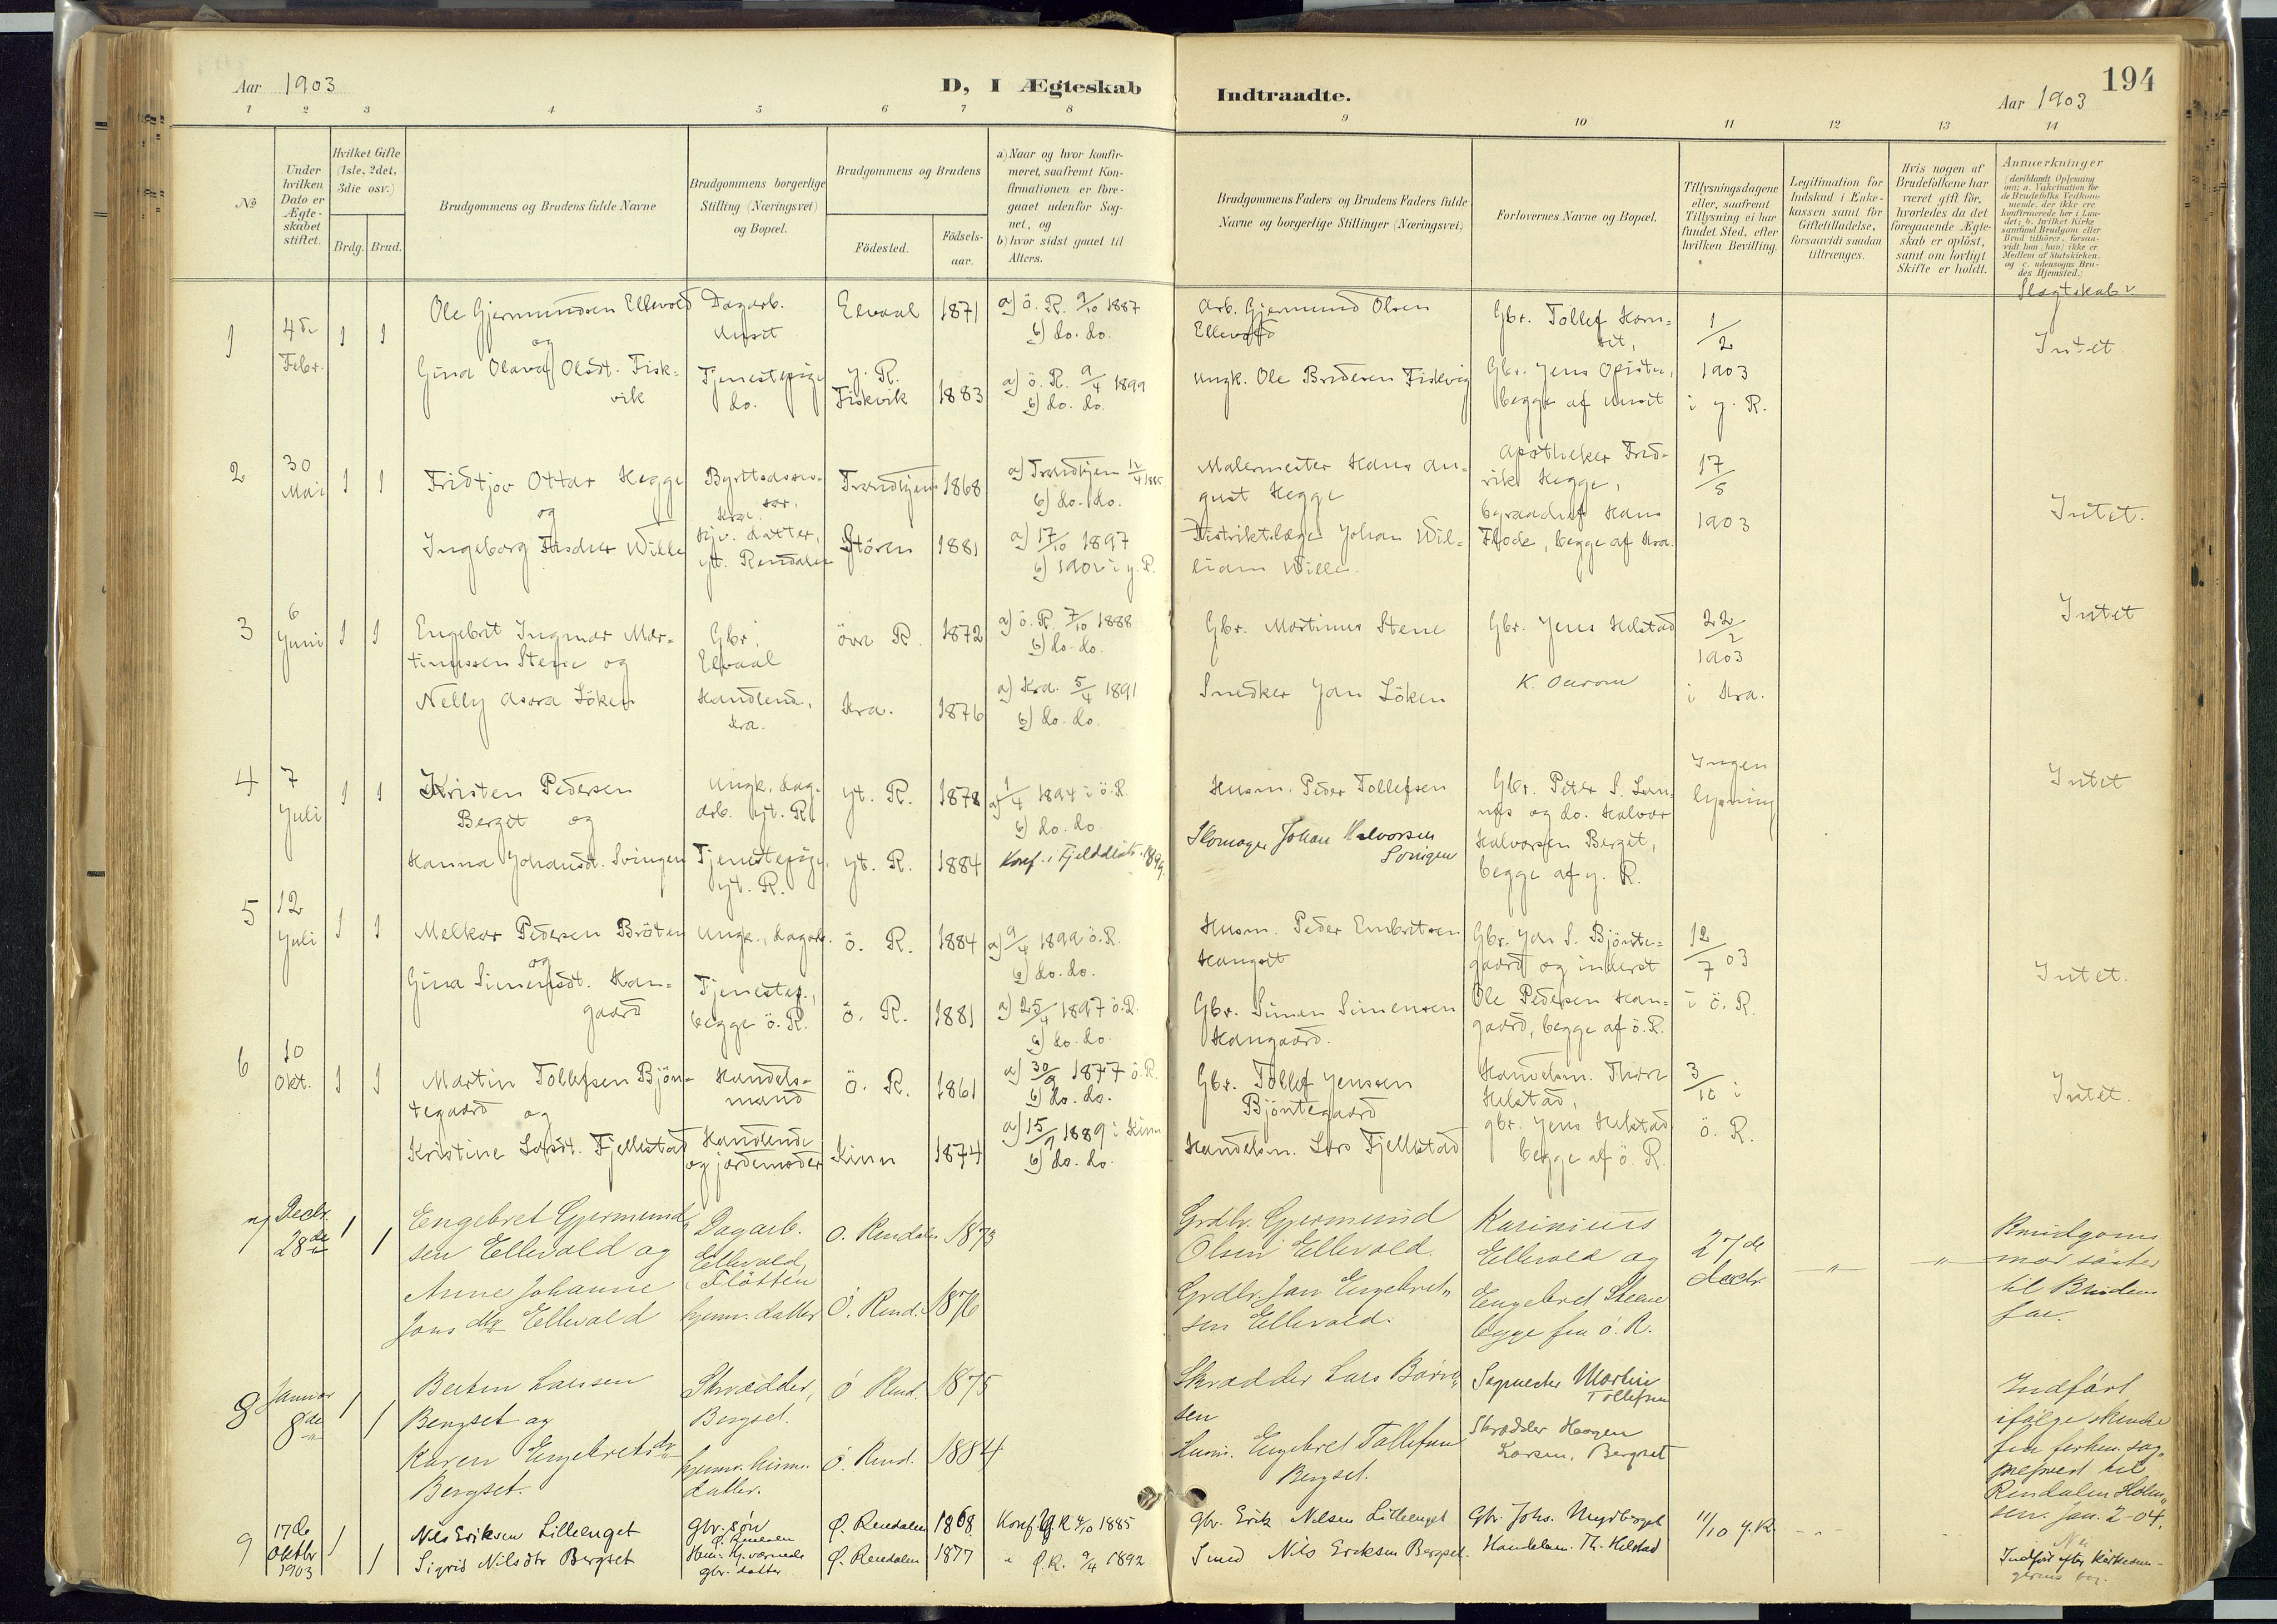 Aar 1903
D, I Ægteskab
Indtraadte.
Aar 1903
194
1 2 3 4 5 6 7 8 9 10 11 12 13 14
No
Under hvilken Dato er Ægteskabet stiftet.
Hvilket Gifte (1ste, 2det, 3die osv.)
Brdg. Brud.
Brudgommens og Brudens fulde Navne
Brudgommens borgerlige Stilling (Næringsvei) og Bopæl.
Brudgommens og Brudens
Fødested.
Fødsels-aar.
a) Naar og hvor konfir-
meret, saafremt Kon-
firmationen er fore-
gaaet udenfor Sog-
net, og
b) hvor sidst gaaet til
Alters.
Brudgommens Faders og Brudens Faders fulde
Navne og borgerlige Stillinger (Næringsvei)
Forlovernes Navne og Bopæl.
Tillysningsdagene
eller, saafremt
Tillysning ei har
fundet Sted, efter
hvilken Bevilling.
Legitimation for
Indskud i Enke-
kassen samt for
Giftetilladelse,
forsaavidt saadan
tiltrænges.
Hvis nogen af
Brudefolkene har
været gift før,
hvorledes da det
foregaaende Ægte-
skab er opløst,
samt om lovligt
Skifte er holdt.
Anmærkninger
(deriblandt Oplysning
om: a. Vakcination for
de Brudefolks Vedkom-
mende, der ikke ere
konfirmerede her i Lan-
det; b. hvilket Kirke-
samfund Brudgom eller
Brud tilhører, forsaa-
vidt han (hun) ikke er
Medlem af Statskirken,
og c. udensogns Bru-
des Hjemsted.)
Slægtskab
1
4de Febr.
1 1
Ole Gjermundsen Ellevold
og
Gina Olava Olsdt. Fisk-
vik
Dagarb.
Unset
Tjenestepige
do.
Elvaal
y. R.
Fiskvik
1871
1883
a) ö. R. 9/10 1887
b) do. do.
a) ö. R. 9/4 1899
b) do. do.
Arb. Gjermund Olsen
Ellevold
Ungk. Ole Bredesen Fiskvig
Gbr. Tollef Horn-
set,
Gbr. Jens Opsitu,
begge af Unset
1/2
1903
i y. R.
Intet.
2
30 Mai
1 1
Fridtjov Ottar Hegge
og
Ingeborg Fischer Wille
Kra.
hjv. datter,
yt. Rendalen
Trondhjem
Stören
1868
1881
a) Trondhjem 12/4 1885
b) do. do.
a) 17/10 1897
b) 1902 i y. R.
Malermester Hans Au-
gust Hegge
Distriktslæge Johan Wil-
liam Wille.
Apotheker Fred-
rik Hegge,
Hans
Flock, begge af Kra.
17/5
1903
Intet.
3
6 Juni
1 1
Engebret Ingmar Mar-
tinussen Stene og
Nelly Asora Löken
Gbr.,
Elvaal
Handlend.,
Kra.
övre R.
Kra.
1872
1876
a) ö. R. 7/10 1888
b) do. do.
a) Kra. 5/4 1891
b) do. do.
Gbr. Martinus Stene
Snedker Jan Löken
Gbr. Jens Helstad
K. Ourom
22/2
1903
i Kra.
Intet
4
7 Juli
1 1
Kristen Pedersen
Berget og
Hanna Johansdt. Svingen
Ungk. dag-
arb. yt. R.
Tjenestepige,
yt. R.
yt. R.
yt. R.
1878
1884
a) 1/4 1894 i ö. R.
b) do. do.
Konf. i Fjelddistr. 1899.
Husm. Peder Tollefsen
Skomager Johan Halvorsen
Svingen
Gbr. Peter S. Lom-
næs og do. Halvor
Halvorsen Berget,
begge af y. R.
Ingen
lysning
Intet
5
12 Juli
1 1
Melkor Pedersen Bröten
og
Gina Simensdt. Han-
gaard
Ungk., dagarb.
Tjenestep.,
begge ö. R.
ö. R.
ö. R.
1884
1881
a) 9/4 1899 ö. R.
b) do. do.
a) 25/4 1897 ö. R.
b) do. do.
Husm. Peder Embretsen
Hangset
Gbr. Simen Simensen
Hangaard.
Gbr. Jon S. Bjönte-
gaard og inderst
Ole Pedersen Han-
gaard, begge af ö. R.
12/7 03
i ö. R.
Intet.
6
10 Okt.
1 1
Martin Tollefsen Bjön-
tegaard og
Kristine Larsdt. Fjellstad
Handels-
mand
Handlende
og jordemoder
ö. R.
Kinn
1861
1874
a) 30/9 1877 ö. R.
b) do. do.
a) 15/9 1889 i Kinn
b) do. do.
Gbr. Tollef Jenssen
Bjöntegaard
Handelsm. Lars Fjellstad
Handelsm. Thore
Helstad,
gbr. Jens Helstad
begge af ö. R.
3/10 i
ö. R.
Intet.
7
Decbr. 28de
1 1
Engebret Gjermund-
sen Ellevold og
Anne Johanne
Jons dtr Ellevold
Dagarb.
Ellevold,
Fløtten
hjemv. datter
Ö. Rendalen
Ö. Rend.
1873
1876
Grdbr. Gjermund
Olsen Ellevold.
Grdbr. Jon Engebret-
sen Ellevold.
Karinius
Ellevold og
Engebret Steene
begge fra ö. R.
27de
decbr.
— „ —
— „ —
Brudgoms
mor söster
til Brudens
far.
8
Januar 8de
1 1
Berten Larsen
Bergset og
Karen Engebretsdtr
Bergset.
Skrædder,
Bergset.
hjemv. husm.
datter.
Ö. Rend.
Ö. Rend.
1875
1884
Skrædder Lars
sen
Husm. Engebret Tollefsen
Bergset.
Martin
Tollefsen
Skrædder Haagen
Larsen, Bergset
Indfört
ifölge skrivelse
fra forhen. sog-
neprest til
Rendalen Holm-
sen. Jan. 2-04.
9
17de Oktbr 1903
1 1
Nils Eriksen Lilleenget
Sigrid Nilsdtr Bergset
Gbr. søn
Ø. Rendalen
Hjem. værende
gbr. datter
Ø. Rendalen
Ø. Rendalen
1868
1877
Konf. Y R 4/10 1885
" Ø. R. 9/4 1892
Gbr. Erik Nilsen Lilleenget
Smed Nils Eriksen Bergset.
Gbr. Johs. Undsberget
Handelsm. Th. Helstad
11/10 y. R.
Nei
Indført efter Kirkesan-
gerens bog.